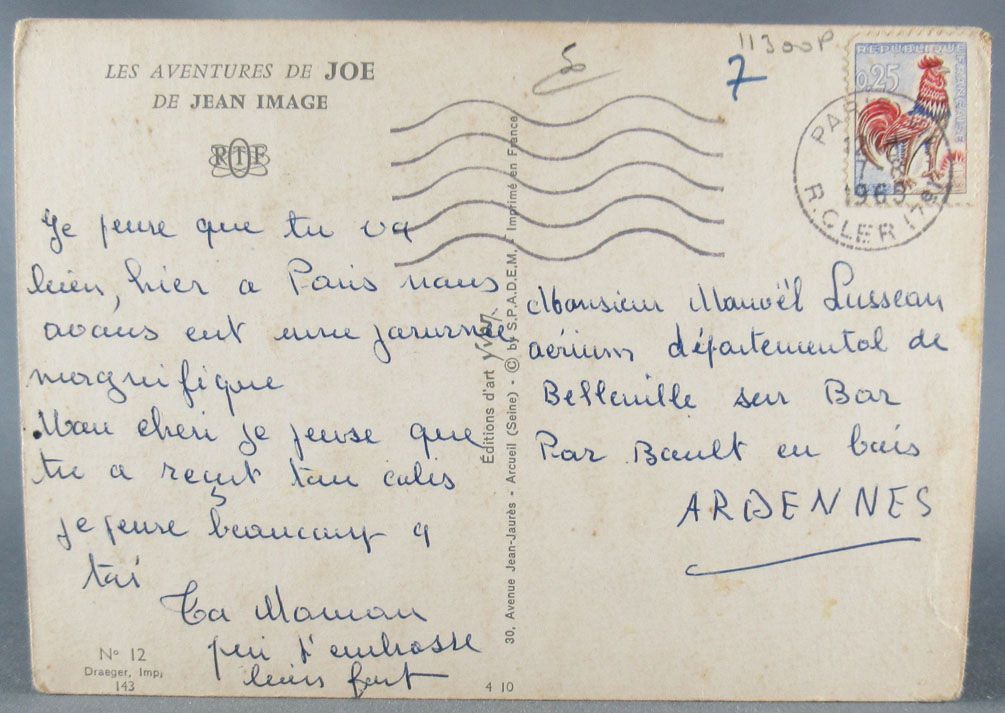 LES AVENTURES DE JOE
DE JEAN IMAGE
RTF
Je pense que tu va
bien, hier a Paris nous
avons eut une journée
magnifique
Mon cheri je pense que
tu a reçut ton colis
je pense beaucoup a
toi
Ta Maman
qui t'embrasse
bien fort
N° 12
Draeger, Imp.
143
4 10
30, Avenue Jean-Jaurès - Arcueil (Seine) - © by S.P.A.D.E.M. - Imprimé en France
Éditions d'art Yvon
11300P
7
REPUBLIQUE FRANÇAISE
0,25
PARIS
1965
R.CLER (7e)
Monsieur Manoël Lusseau
aérium départemental de
Belleville sur Bar
Par Boult en bois
ARDENNES